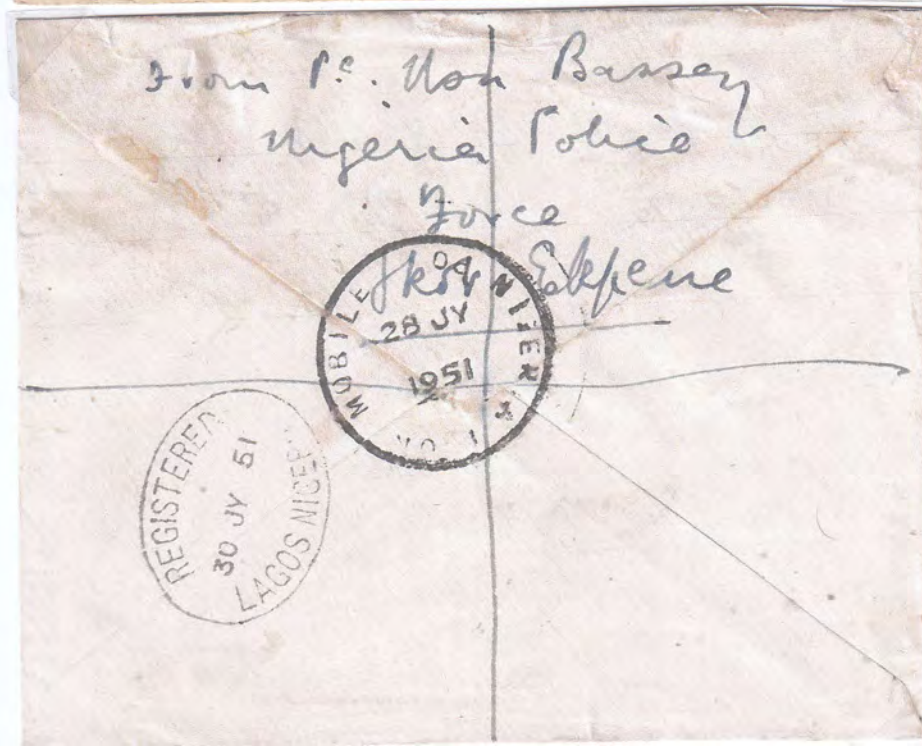 From Pc. Bassey
Nigeria Police
Force
Ikot Ekpene
MOBILE
28 JY
1951
REGISTERED
30 JY 51
LAGOS NIGER